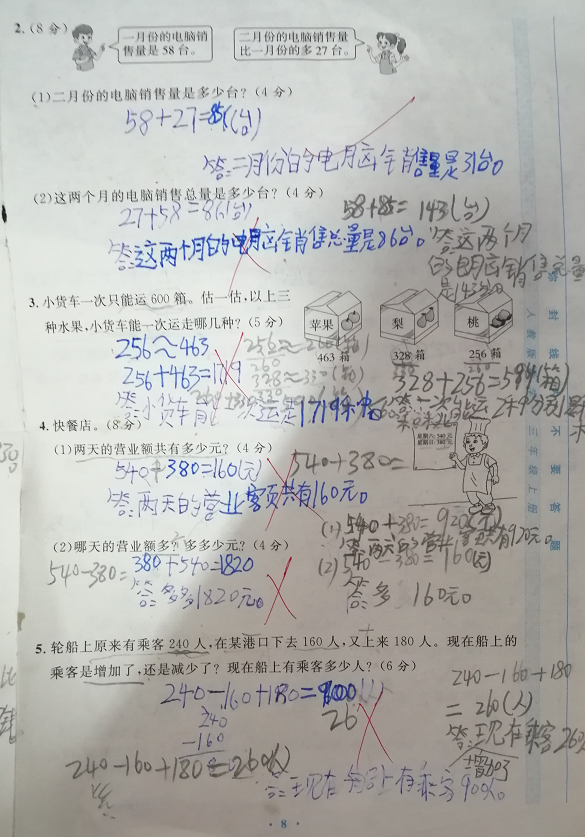 2.(8 分)
一月份的电脑销
售量是 58 台。
二月份的电脑销售量
比一月份的多 27 台。
(1)二月份的电脑销售量是多少台?(4 分)
58+27=85(台)
答:二月份的电脑销售量是31台。
(2)这两个月的电脑销售总量是多少台?(4 分)
27+58=86(台)
58+85=143(台)
答:这两个月的电脑销售总量是86台。
答:这两个月
的电脑销售总量
是143台
3. 小货车一次只能运 600 箱。估一估,以上三
种水果,小货车能一次运走哪几种?(5 分)
苹果
梨
桃
463 箱
328 箱
256 箱
256≈463
256+463=1719
328+256=584(箱)
4. 快餐店。(8 分)
(1)两天的营业额共有多少元?(4 分)
星期六:540 元
星期日:380 元
540+380=160(元)
540+380=
答:两天的营业额共有160元。
(1) 540+380=920(元)
答:两天的营业额共有920元。
(2)哪天的营业额多?多多少元?(4 分)
540-380=
380+540=1820
答:多1820元。
(2) 540-380=160(元)
答:多 160元。
5. 轮船上原来有乘客 240 人,在某港口下去 160 人,又上来 180 人。现在船上的
乘客是增加了,还是减少了?现在船上有乘客多少人?(6 分)
240-160+180=900(人)
26
240
-160
240-160+180=260(人)
240-160+180
=260(人)
答:现在乘客260人
答:现在船上有乘客900人。
人教版
三年级上册
密封线
不要答题
· 8 ·